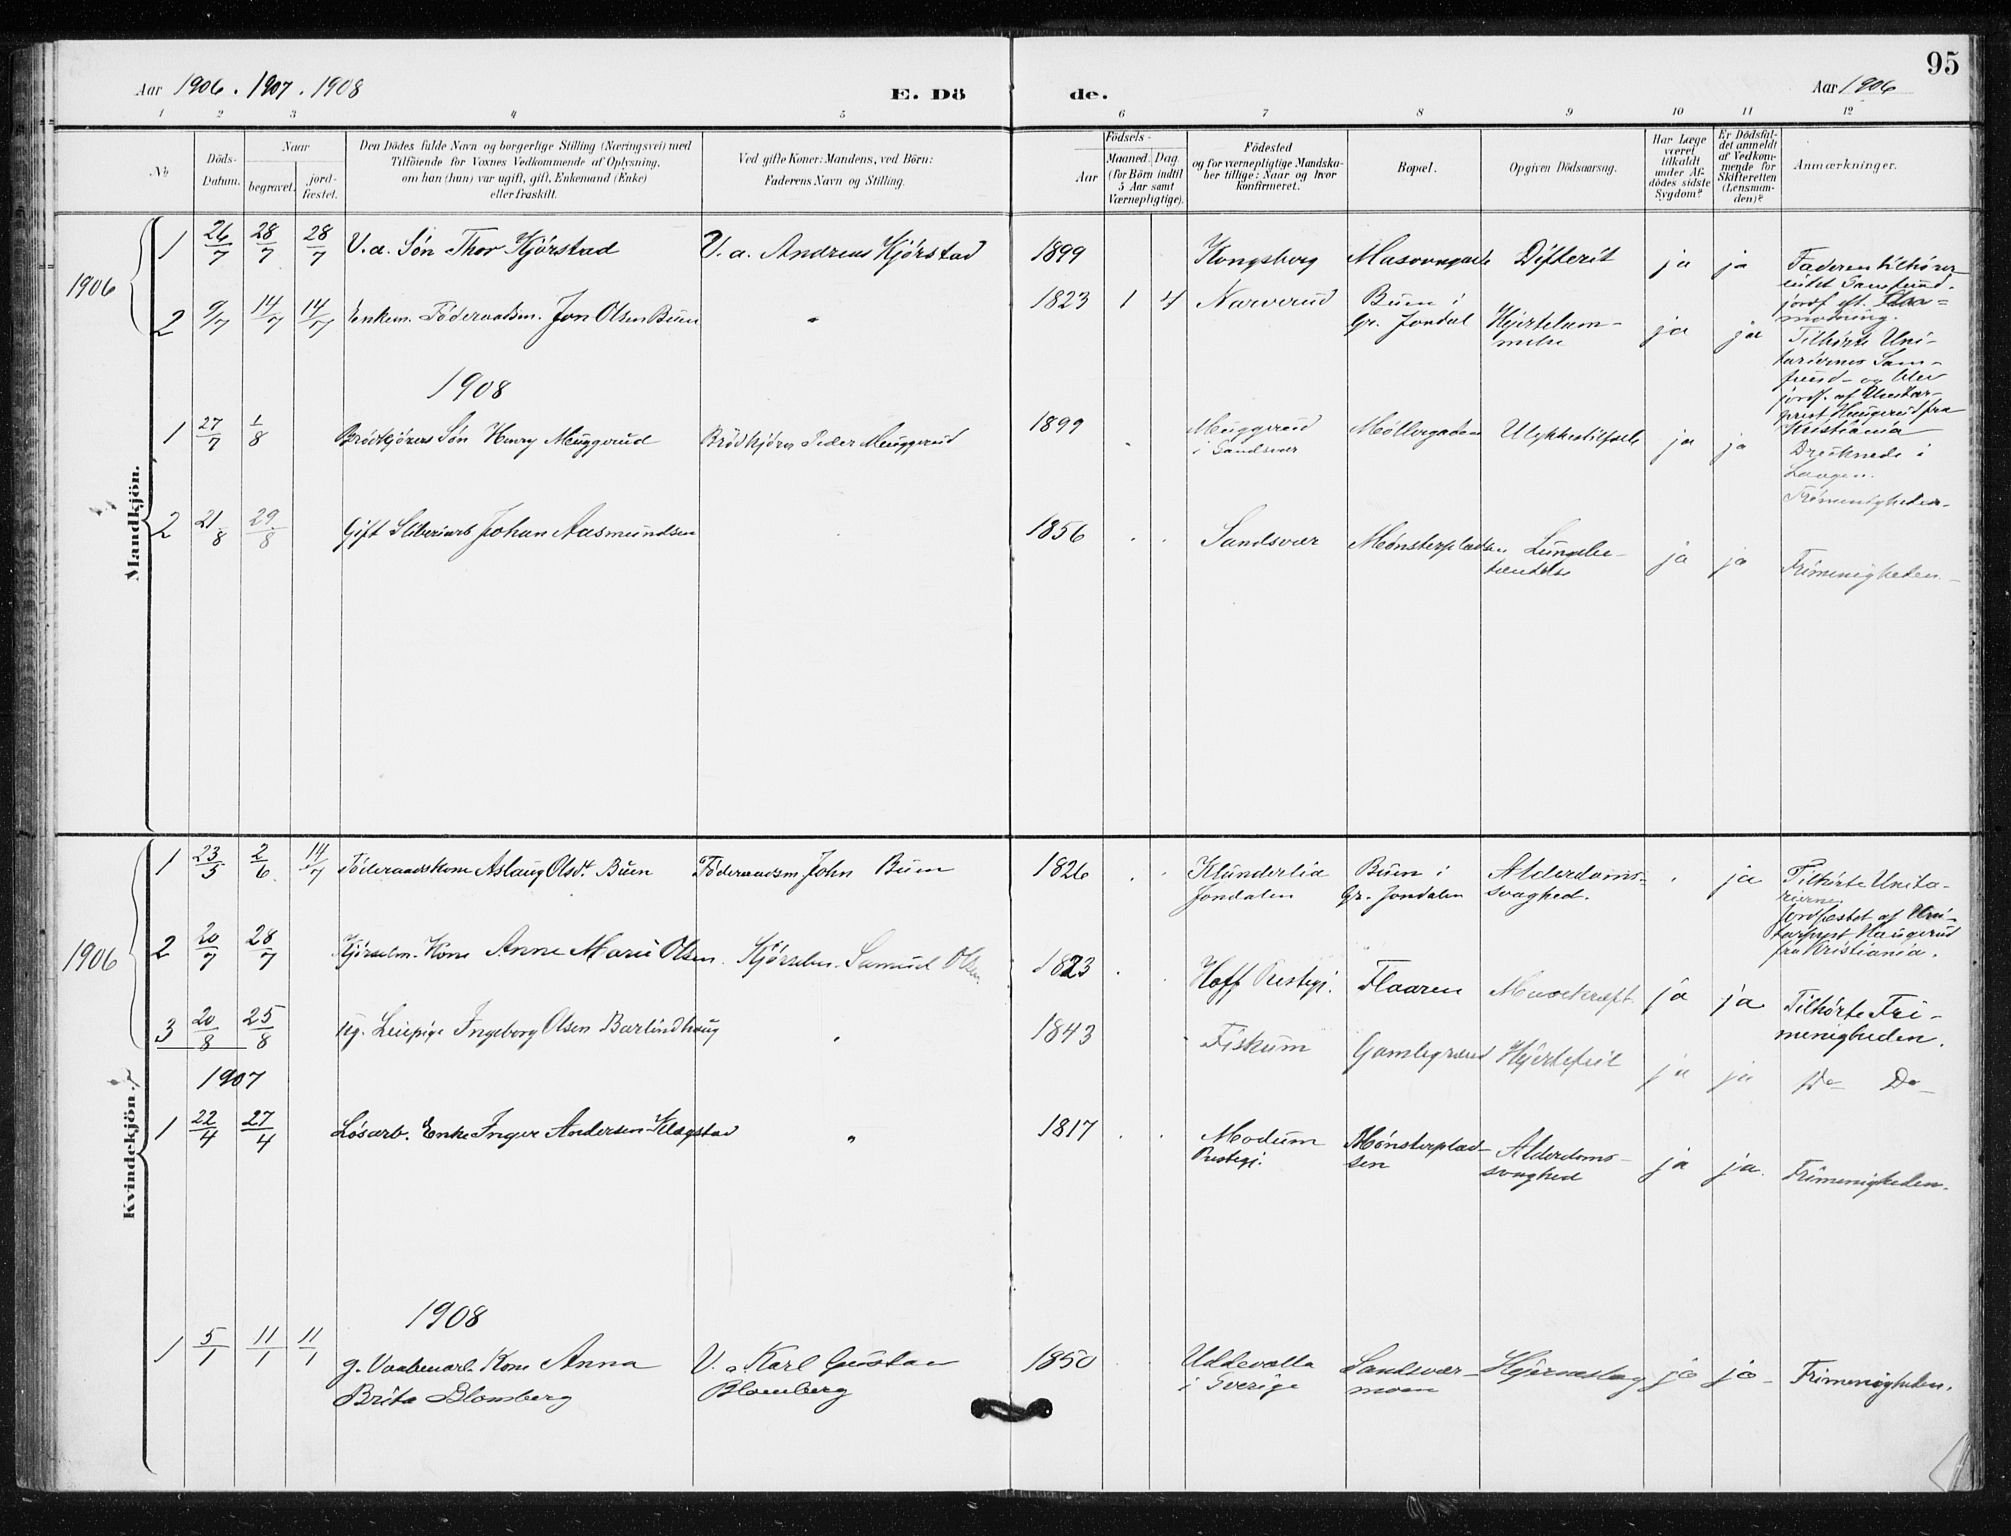 95
Aar 1906 . 1907 . 1908
E. Dö de.
Aar 1906
1 2 3 4 5 6 7 8 9 10 11 12
No
Döds-
Datum.
Naar
begravet.
jord-
fæstet.
Den Dödes fulde Navn og borgerlige Stilling (Næringsvei) med
Tilföiende for Voxnes Vedkommende af Oplysning,
om han (hun) var ugift, gift, Enkemand (Enke)
eller fraskilt.
Ved gifte Koner: Mandens, ved Börn:
Faderens Navn og Stilling.
Födsels-
Aar
Maaned. Dag.
(for Börn indtil
5 Aar samt
Værnepligtige).
Födested
og for værnepligtige Mandska-
ber tillige: Naar og hvor
konfirmeret.
Bopæl.
Opgiven Dödsaarsag.
Har Læge
været
tilkaldt
under Af-
dödes sidste
Sygdom?
Er Dödsfal-
det anmeldt
af Vedkom-
mende for
Skifteretten
(Lensman-
den)?
Anmærkninger.
Mandkjön.
1906
1 26/7 28/7 28/7 V. a. Sön Thor Hjörstad V. a. Andreas Hjörstad 1899 Kongsberg Difterit ja ja
Faderen tilhörer
intet Samfund.
jordf. eft.
modning.
2 9/7 14/7 14/7 Enkem. Föderaadsm. Jon Olsen Buen " 1823 1 4 Narverud Buen i
Gr. Jondal
Hjertelam-
melse ja ja
Tilhörte Uni-
tariernes Sam-
fund - og blev
jordf. af Unitar-
prest Haugerud fra
Kristiania
1908
1 27/7 1/8 Brödkjörers Sön Henry Muggerud Brödkjörer Peder Muggerud 1899 . Muggerud
i Sandsvær
Möllergaden Ulykkestilfælde ja ja
Druknede i
Laagen.
Frimenigheden-
2 21/8 29/8 Gift Sliberiarb Johan Aasmundsen 1856 . . Sandsvær Mönsterpladsen Lungebe-
tændelse ja ja Frimenigheden.
Kvindekjön.
1906
1 23/5 2/6 14/7 Föderaadskone Aslaug Olsdt. Buen Föderaadsm John Buen 1826 . . Klunderlia
Jondalen
Buen i
Gr. Jondalen
Alderdoms-
svaghed. . ja
Tilhörte Unita-
rierne.
Jordfæstet af Uni-
tarprest Haugerud
fra Kristiania.
2 20/7 28/7 Kone Anne Marie Olsen. Samuel Olsen. 1823 . Hoff Prestegj. Flaaren Mavekræft. ja ja
Tilhörte Fri-
menigheden.
3 20/8 25/8 ug. Leiepige Ingeborg Olsen Barlindhaug " 1843 Fiskum Gamlegrænd Hjertefeil ja ja Do Do
1907
1 22/4 27/4 Lösarb. Enke Inger Andersen Klegstad " 1817 . . Modum
Prestegj.
Mönsterplad-
sen
Alderdoms-
svaghed ja ja. Frimenigheden.
1908
1 5/1 11/1 11/1 g. Vaabenarb. Kone Anna
Brita Blomberg
V. a Karl Gustav
Blomberg
1850 Uddevalla
i Sverige
Sandsvær-
moen
Hjerneslag ja ja - Frimenigheden.